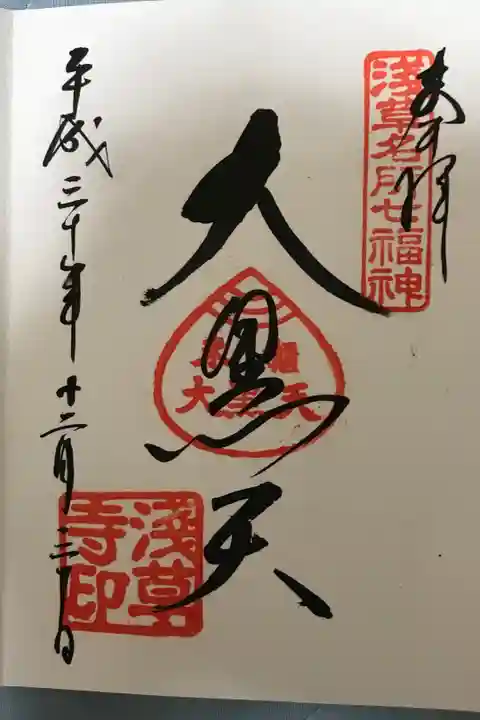 奉拝
浅草名所七福神
大黒天
大黒天
平成三十年十二月三十日
浅草
寺印